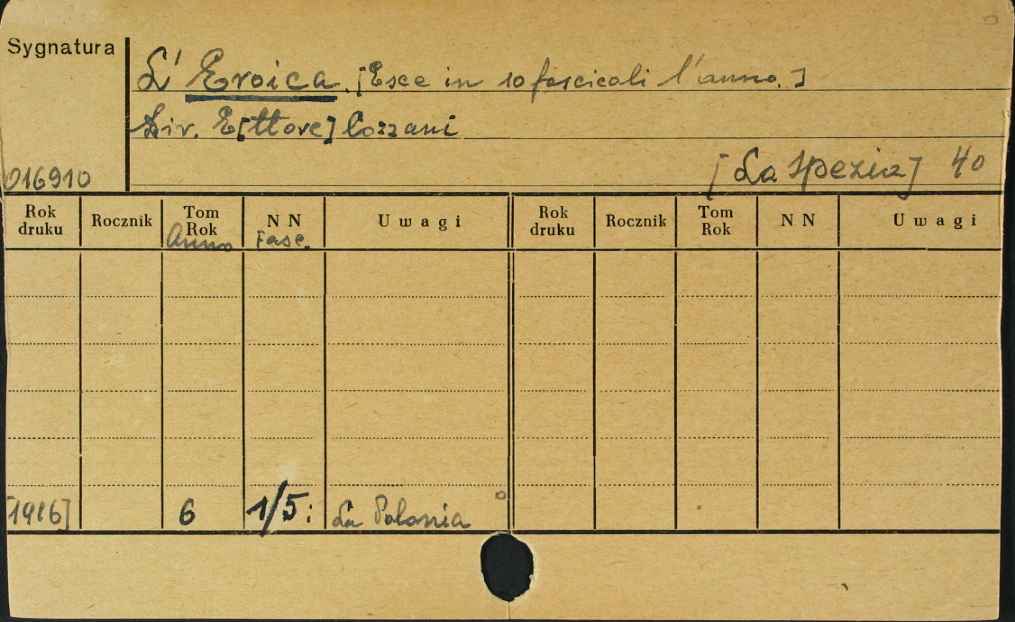 Sygnatura
L' Eroica. [Esce in 10 fascicoli l'anno.]
Dir. E[ttore] Cozzani
016910
[La Spezia] 4o
Rok druku Rocznik Tom Rok N N Uwagi Rok druku Rocznik Tom Rok N N Uwagi
Anno Fasc.
[1916] 6 1/5: La Polonia